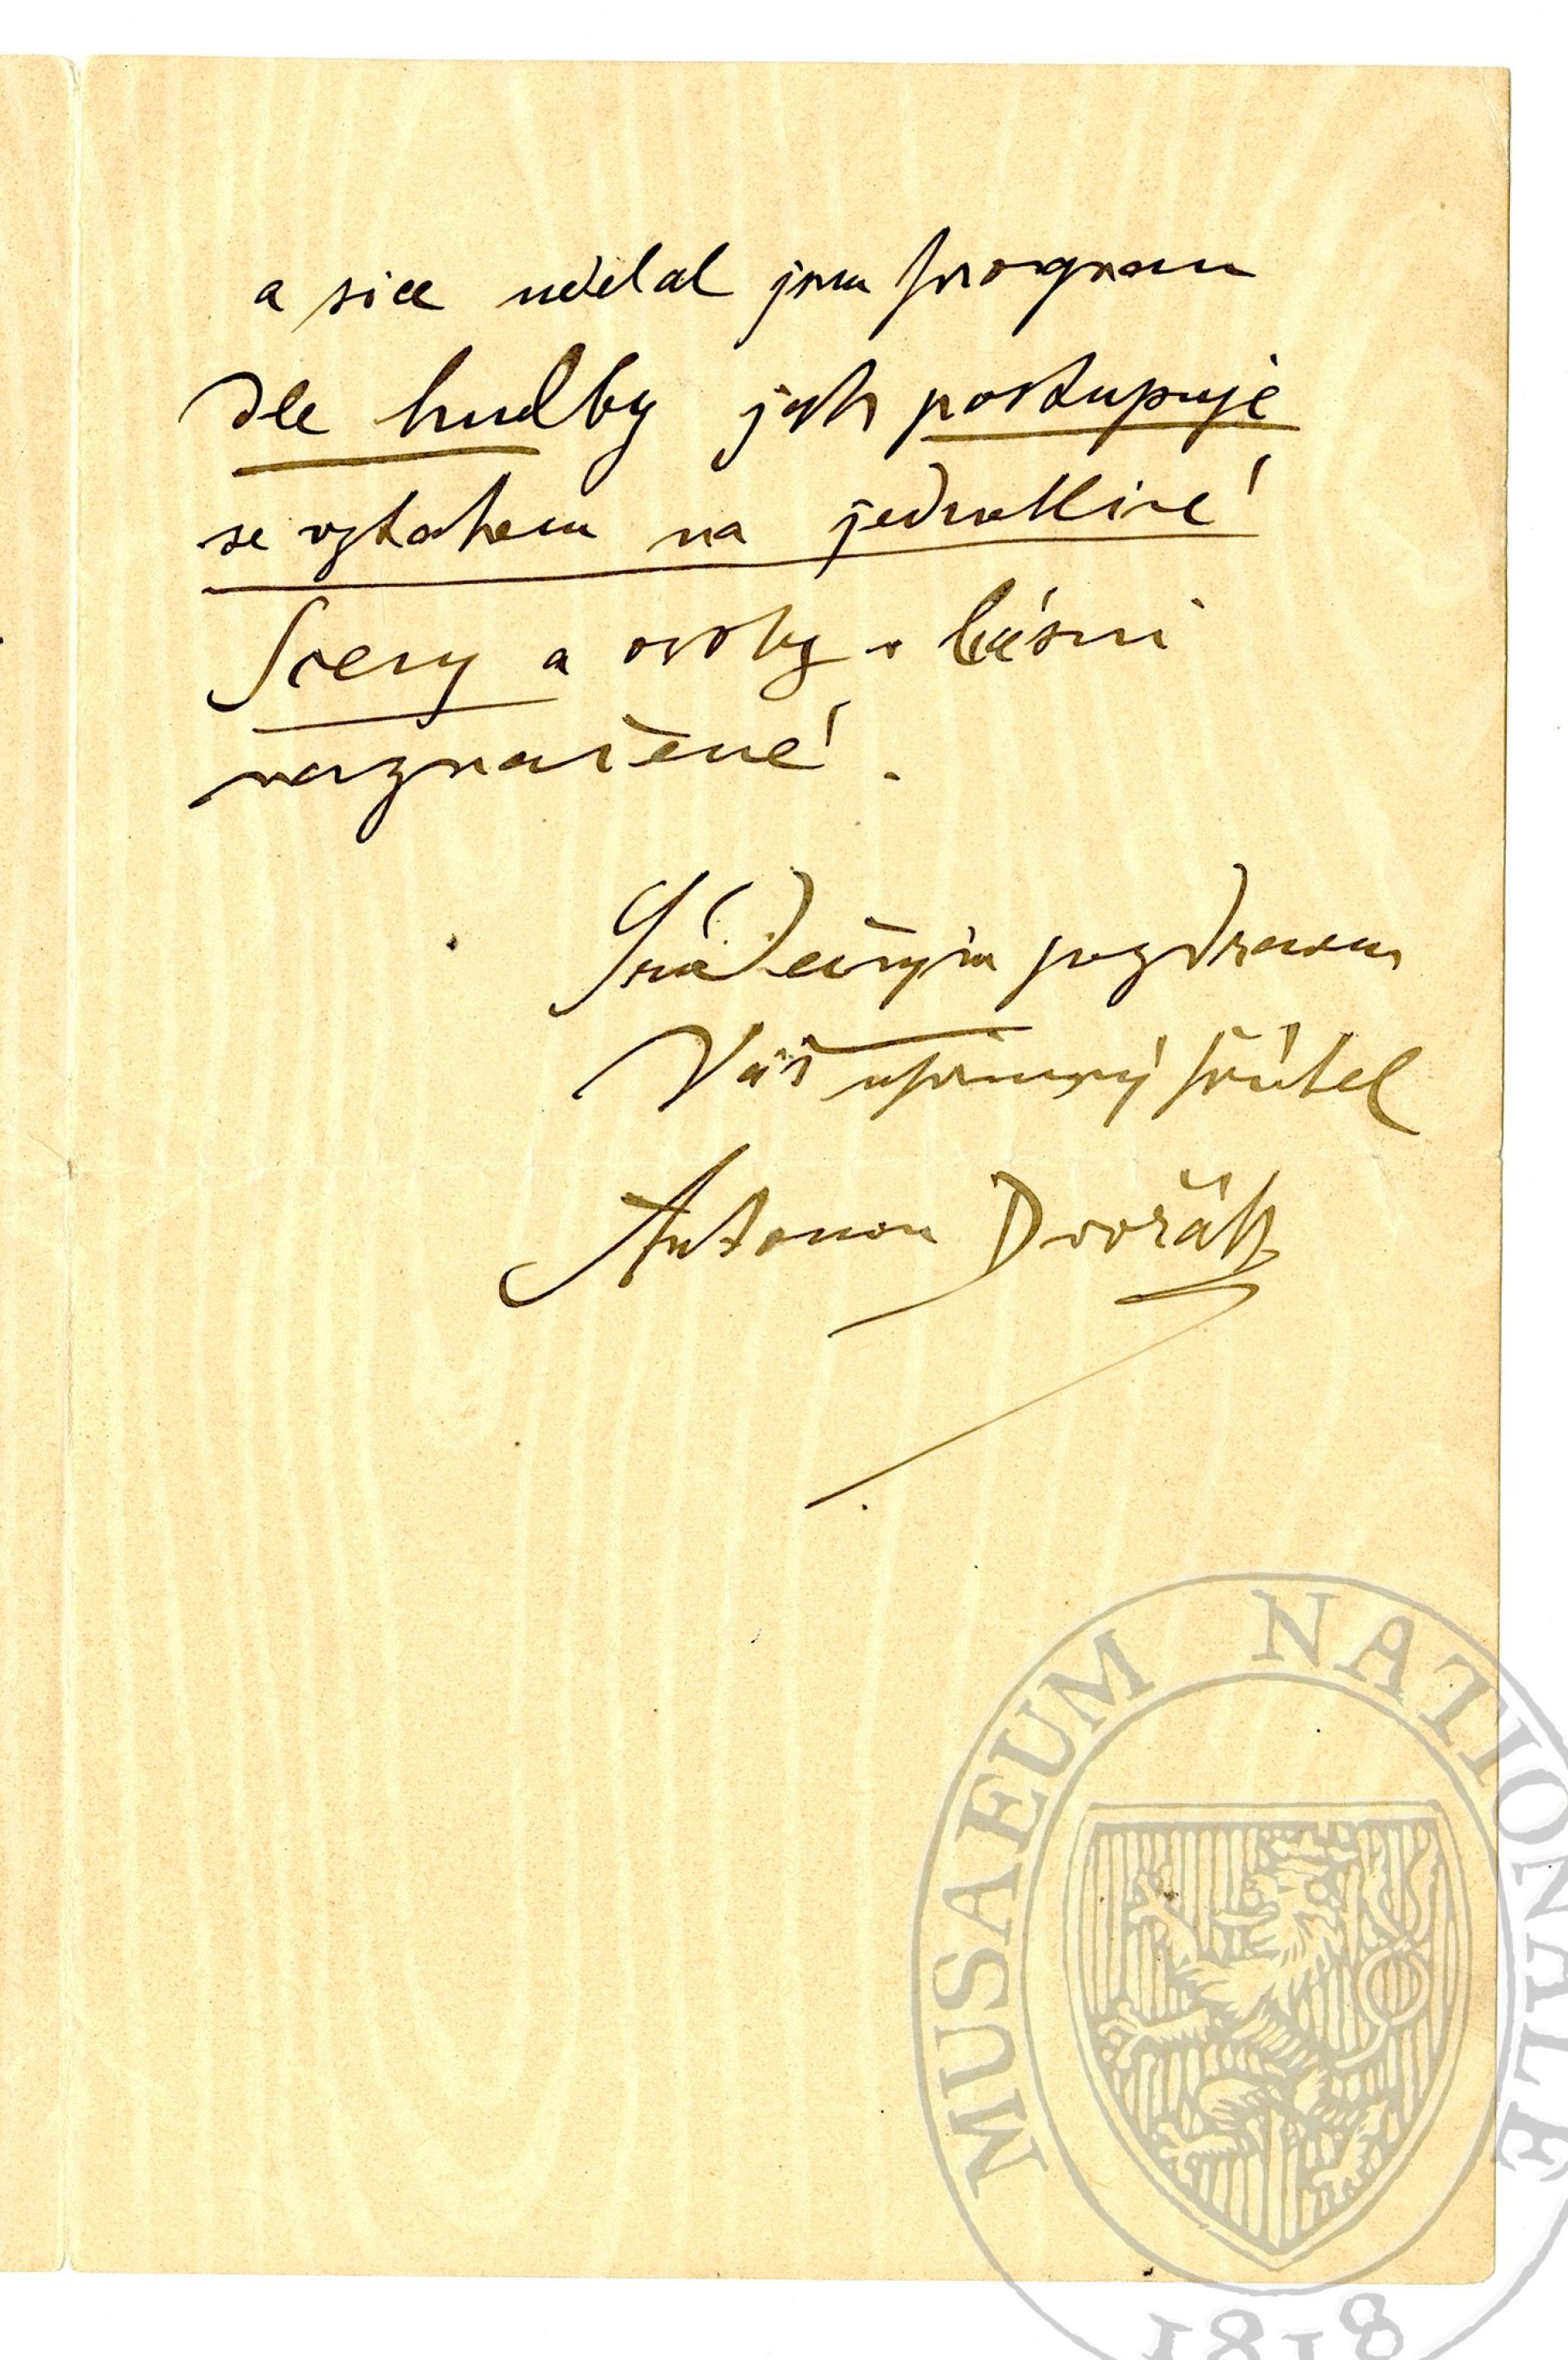 a sice udělal jsem program
dle hudby jak postupuje
se vztahem na jednotlivé
Sceny a osoby v básni
naznačené.
Srdečným pozdravem
Váš upřímný přítel
Antonin Dvořák
MUSAEUM NATIONALE
1818